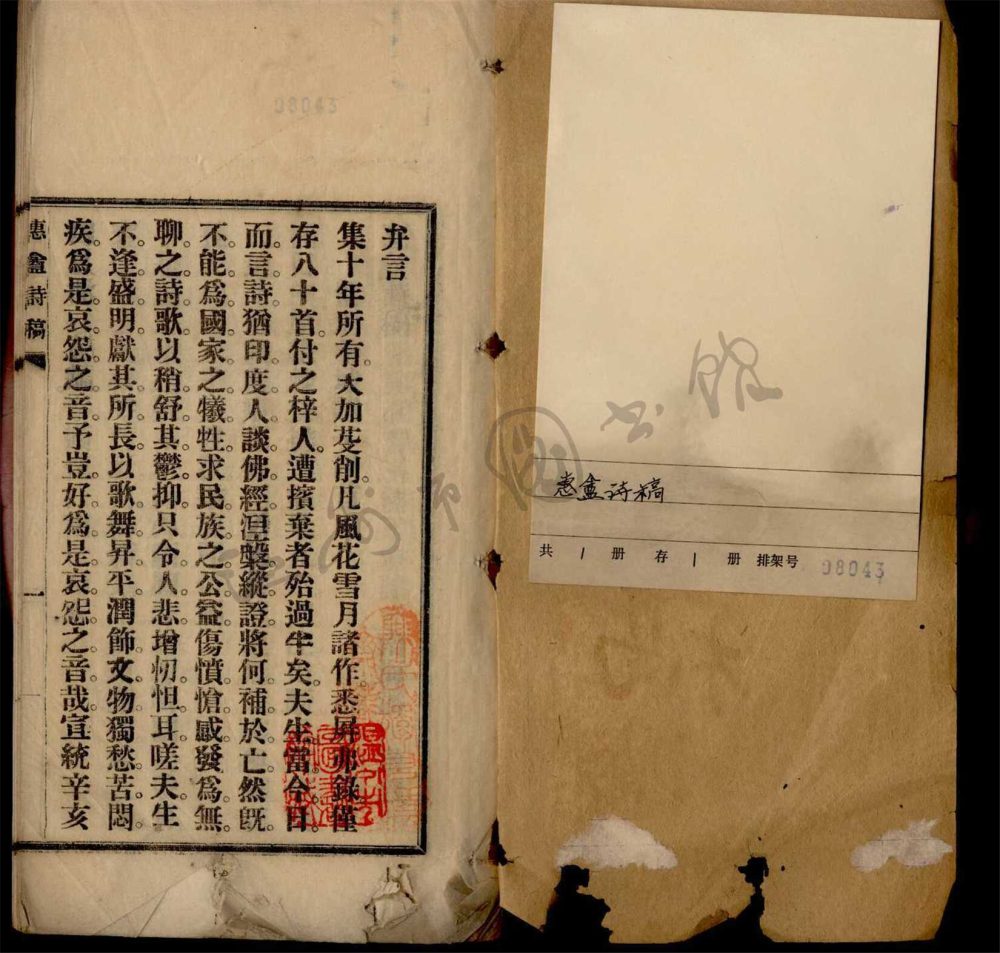 弁言
集十年所有。大加芟削。凡風花雪月諸作。悉屏弗錄。僅
存八十首。付之梓人。遭擯棄者殆過半矣。夫生當今日。
而言詩。猶印度人談佛經涅槃。縱證將何補於亡。然旣
不能爲國家之犧牲。求民族之公益。傷憤愴感。發爲無
聊之詩歌。以稍舒其鬱抑。只令人悲增忉怛耳。嗟夫。生
不逢盛明。獻其所長。以歌舞昇平。潤飾文物。獨愁苦悶
疾。爲是哀怨之音。予豈好爲是哀怨之音哉。宣統辛亥
惠盦詩稿
一
08043
惠盦詩稿
共 1 册 存 1 册 排架号 08043
書館